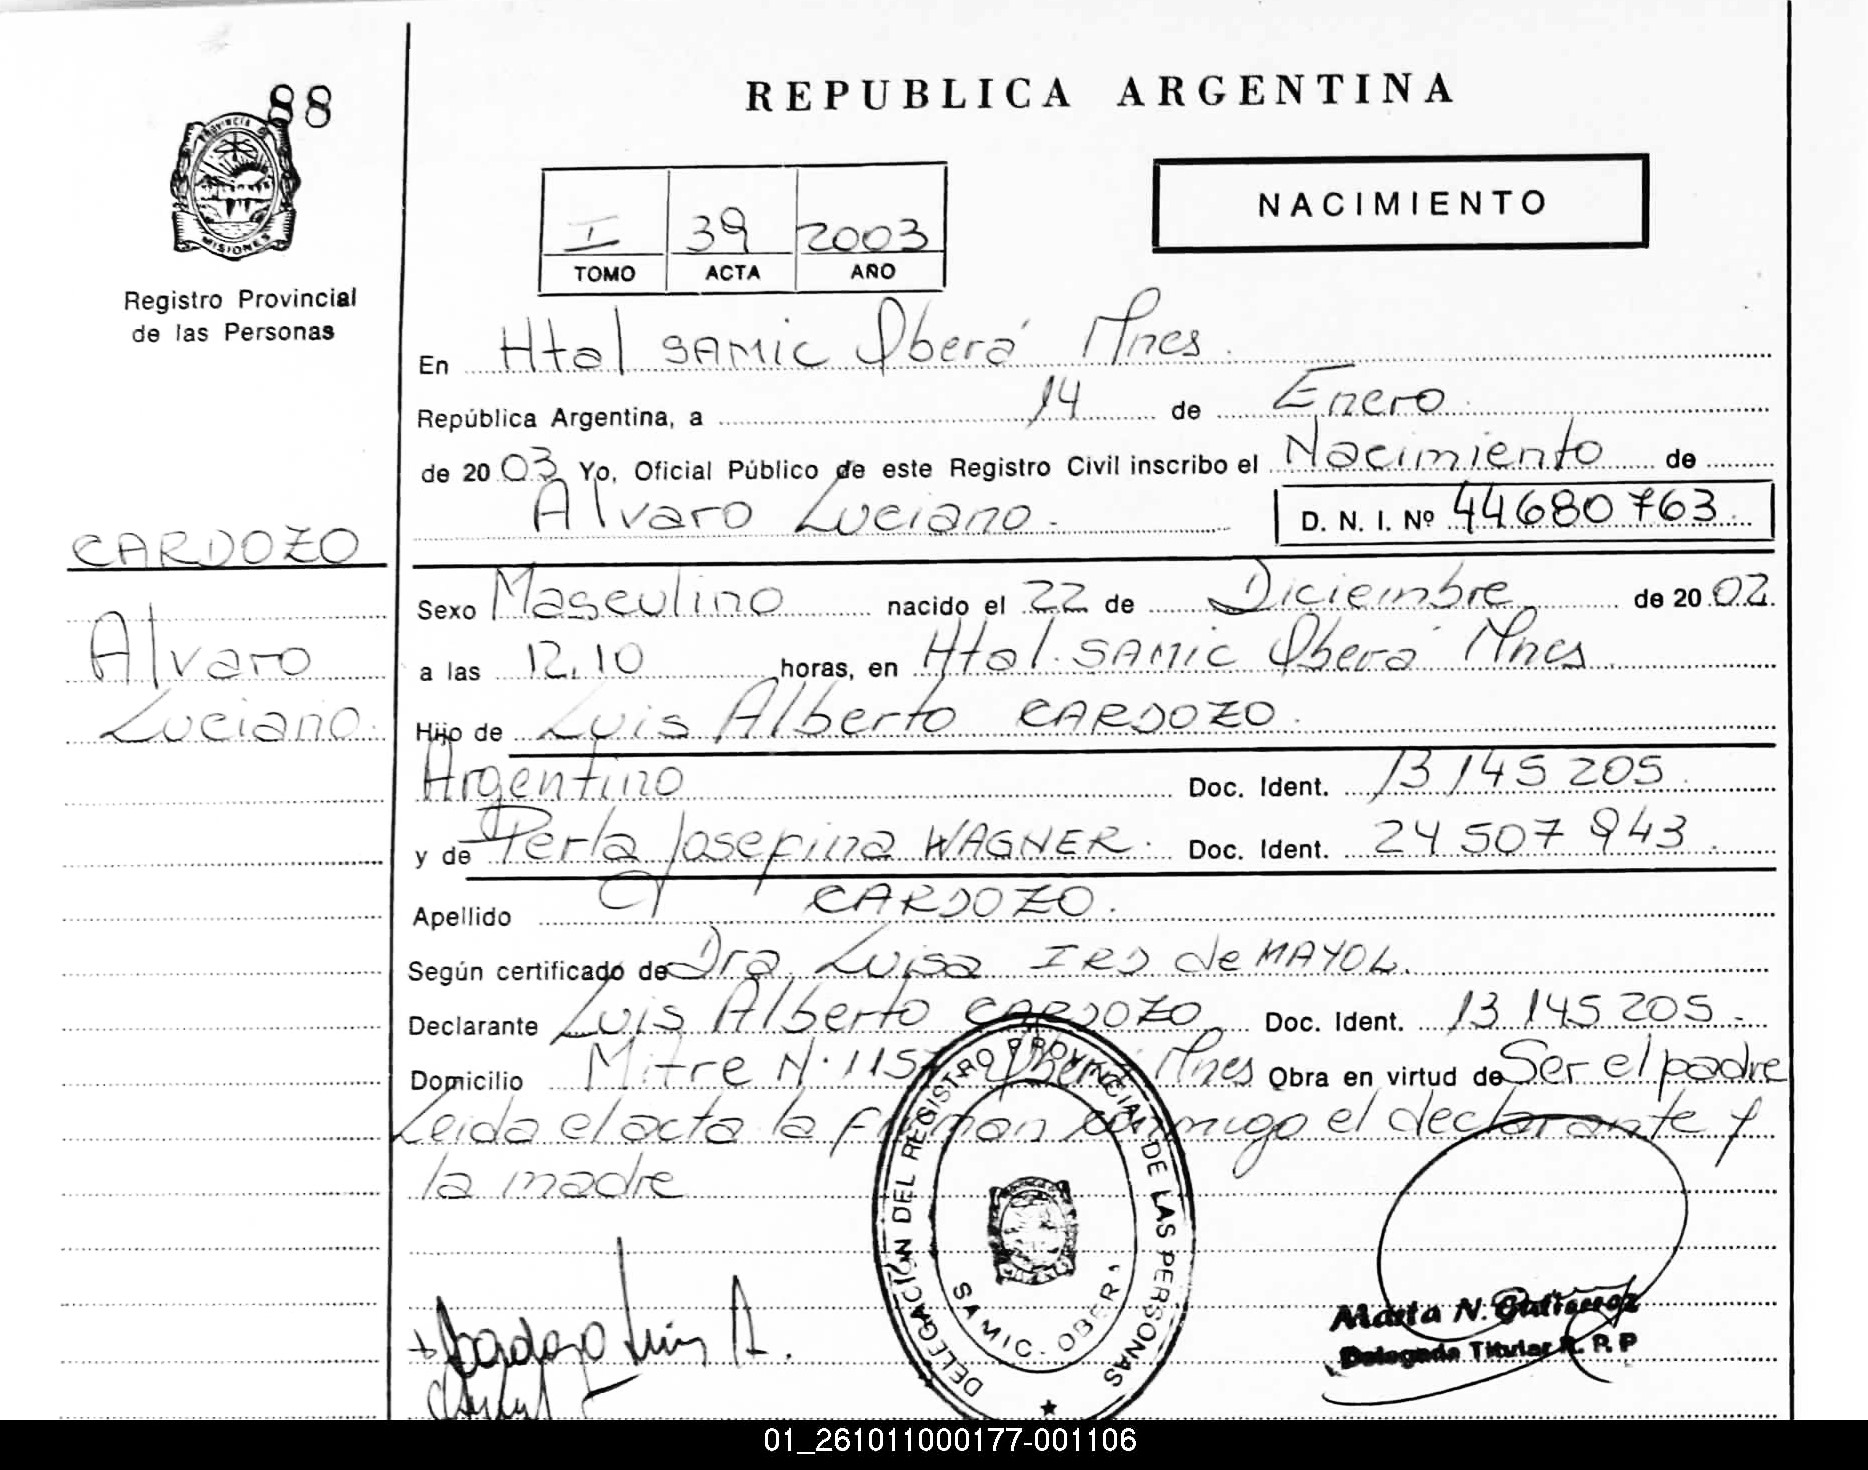 88
PROVINCIA DE
MISIONES
Registro Provincial
de las Personas
CARDOZO
Alvaro
Luciano.
REPUBLICA ARGENTINA
I 39 2003
TOMO ACTA AÑO
NACIMIENTO
En Htal SAMIC Oberá Mnes.
República Argentina, a 14 de Enero
de 20 03 Yo, Oficial Público de este Registro Civil inscribo el Nacimiento de
Alvaro Luciano.
D. N. I. Nº 44680763
Sexo Masculino nacido el 22 de Diciembre de 20 02
a las 12,10 horas, en Htal. SAMIC Oberá Mnes
Hijo de Luis Alberto CARDOZO.
Argentino Doc. Ident. 13 145 205
y de Perla Josefina WAGNER. Doc. Ident. 24 507 943
Apellido CARDOZO.
Según certificado de Dra. Luisa de MAYOL.
Declarante Luis Alberto CARDOZO Doc. Ident. 13 145 205.
Domicilio Mitre N. Oberá Mnes Obra en virtud de Ser el padre
Leida el acta la firman conmigo el declarante y
la madre
DELEGACIÓN DEL REGISTRO PROVINCIAL DE LAS PERSONAS
SAMIC. OBERÁ
Cardozo Luis A.
Marta N. Gutierrez
Delegada Titular R. R. P
01_261011000177-001106